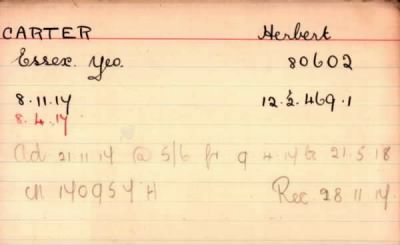 CARTER Herbert
Essex. Yeo. 80602
8.11.17 12.½.469.1
8.4.17
Ad 21 11 17 @ 5/6 fr 9 4 17 to 21 5 18
CR 140954 H Rec 28 11 17.